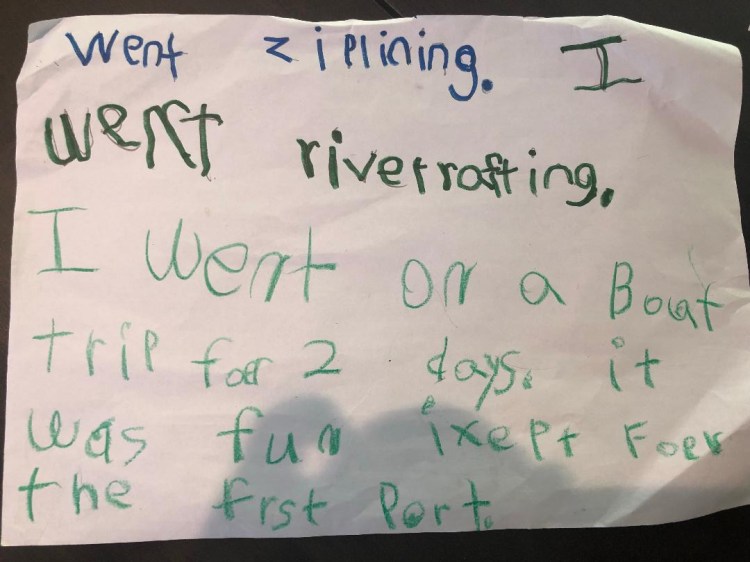 went ziplining. I
went
riverrafting.
I went on a Boat
trip foer 2 days. it
was fun ixept Foer
the frst Port.